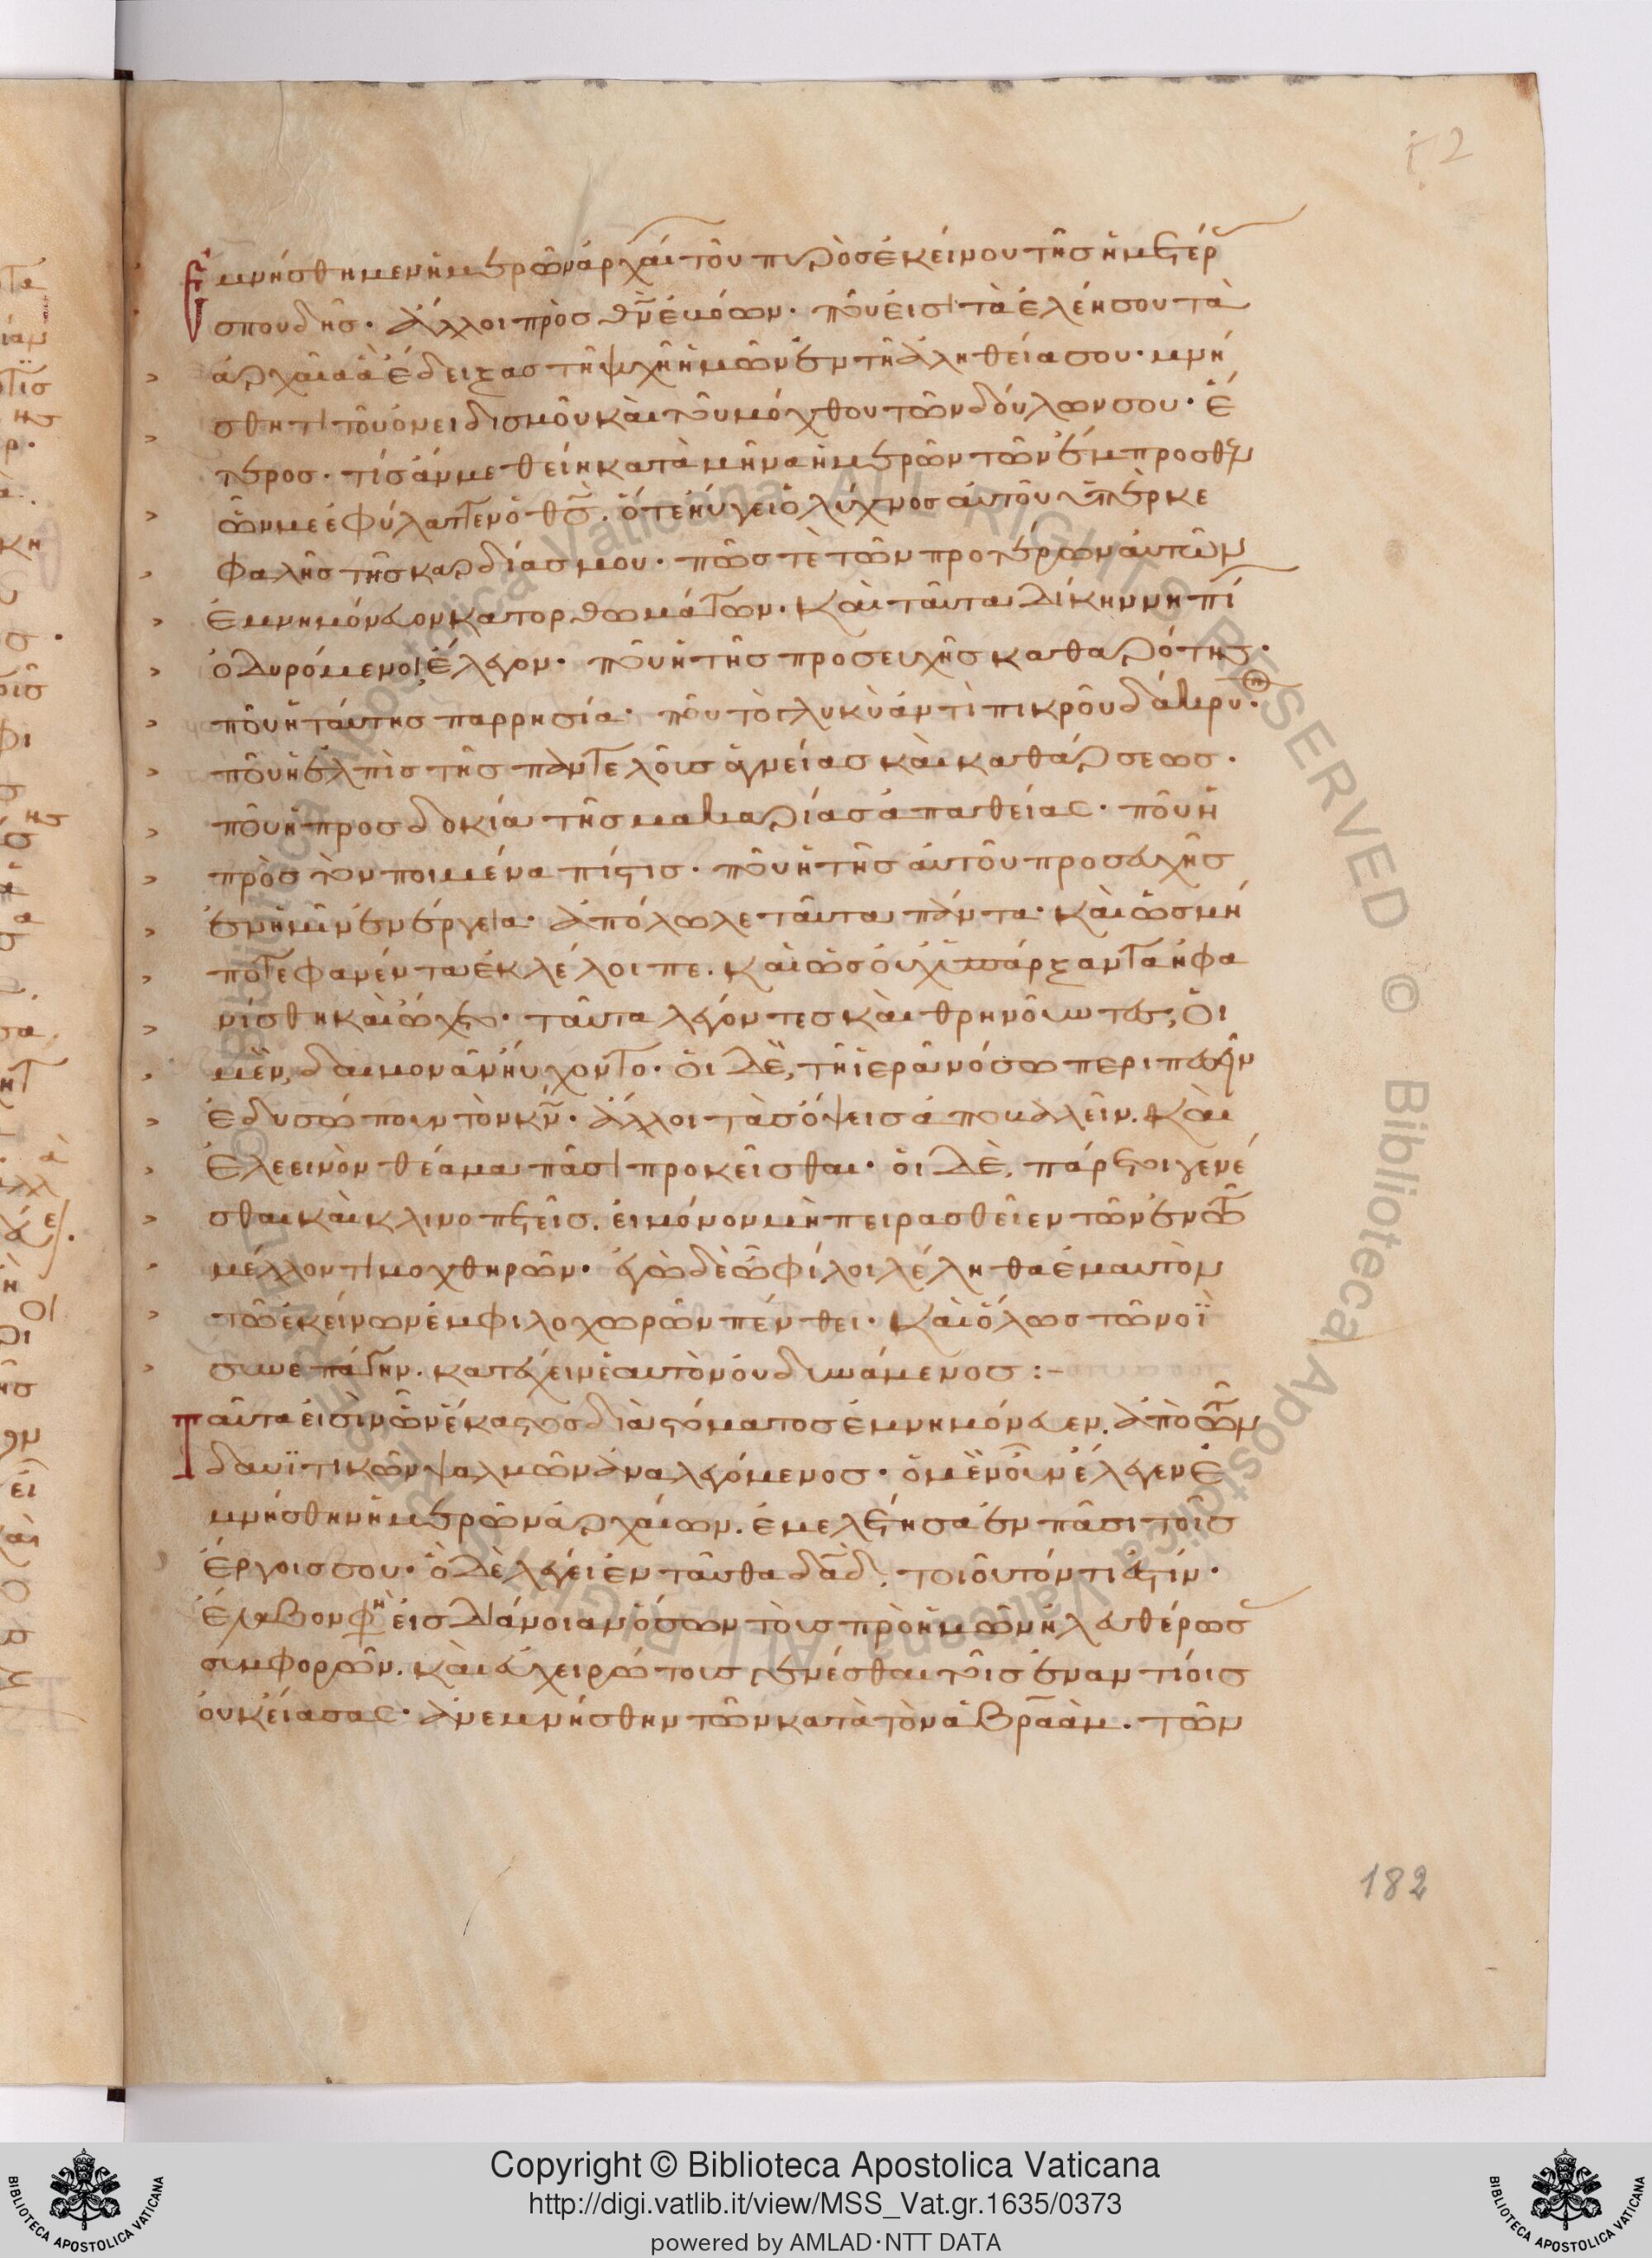 ἐμνήσθημεν ἡμερῶν ἀρχαί τοῦ πυρὸς ἐκείνου τῆς ἡμετέρ
σπουδῆς· ἄλλοι πρὸς θν̄ ἐβόων· ποῦ εἰσὶ τὰ ἐλέη σου τὰ
ἀρχαῖα ἃ ἔδειξας τῆ ψυχῆ ἡμῶν ἐν τῆ ἀληθεία σου· μνή
σθητι τοῦ ὀνειδισμοῦ καὶ τοῦ μόχθου τῶν δούλων σου· ἕ
τερος· τίς ἄν με θείη κατὰ μῆνα ἡμερῶν τῶν ἔμπροσθεν
ὧν με ἐφύλαττεν ὁ θσ̄. ὅτε ηὔγει ὁ λύχνος αὐτοῦ ὑπὲρ κε
φαλῆς τῆς καρδίας μου· πῶς τὲ τῶν προτέρων αὐτῶν
ἐμνημόνευον κατορθωμάτων· καὶ ταῦτα δίκην νηπί
ὀδυρόμενοι, ἔλεγον· ποῦ ἡ τῆς προσευχῆς καθαρότης·
ποῦ ἡ ταύτης παρρησία· ποῦ τὸ γλυκὺ ἀντὶ πικροῦ δάκρυ·
ποῦ ἡ ἐλπὶς τῆς παντελοῦς ἁγνείας καὶ καθάρσεως·
ποῦ ἡ προσδοκία τῆς μακαρίας ἀπαθείας· ποῦ ἡ
πρὸς τὸν ποιμένα πίστις· ποῦ ἡ τῆς αὐτοῦ προσευχῆς
ἐν ἡμῖν ἐνέργεια· ἀπόλωλε ταῦτα πάντα· καὶ ὡς μή
ποτε φανέντα ἐκλέλοιπε. καὶ ὡς οὐχ ὑπάρξαντα ἠφα
νίσθη καὶ ὤχετο· ταῦτα λέγοντες καὶ θρηνοῦντες, οἱ
μὲν, δαιμονᾶν ηὔχοντο· οἱ δὲ, τῆ ἱερᾶ νόσω περιπεσεῖν
ἐδυσώπουν τὸν κν̄· ἄλλοι τὰς ὄψεις ἀποβαλεῖν. καὶ
ἐλεεινὸν θέαμα πᾶσι προκεῖσθαι· οἱ δὲ, πάρετοι γενέ
σθαι καὶ κλινοπετεῖς. εἰ μόνον μὴ πειρασθεῖεν τῶν ἐν τῶ
μέλλοντι μοχθηρῶν· ἐγὼ δὲ ὦ φίλοι λέληθα ἐμαυτὸν
τῶ ἐκείνων ἐμφιλοχωρῶν πένθει· καὶ ὅλως τῶ νοῒ
συνεπάγην. κατέχειν ἑαυτὸν οὐ δυνάμενος :-
Ταῦτα εἰσὶν ὧν ἕκαστος διὰ στόματος ἐμνημόνευεν. ἀπὸ τῶν
δαυϊτικῶν ψαλμῶν ἀναλεγόμενος· ὁ μὲν οὖν ἔλεγεν ἐ
μνήσθην ἡμερῶν ἀρχαίων. ἐμελέτησα ἐν πᾶσι τοῖς
ἔργοις σου· ὃ δὲ λέγει ἐνταῦθα δᾱδ, τοιοῦτόν τι ἐστίν·
ἔλαβον φη εἰς διάνοιαν ὅσων τοὺς πρὸ ἡμῶν ἠλευθέρωσ
συμφορῶν. καὶ εὐχειρώτους γενέσθαι τοῖς ἐναντίοις
οὐκ εἴασας· ἀνεμνήσθην τῶν κατὰ τὸν ἀβραὰμ. τῶν
182
Copyright © Biblioteca Apostolica Vaticana
http://digi.vatlib.it/view/MSS_Vat.gr.1635/0373
powered by AMLAD·NTT DATA